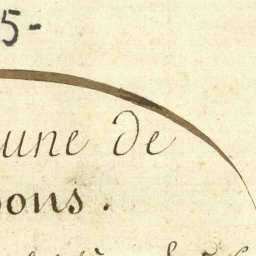 5-
une de
ons.